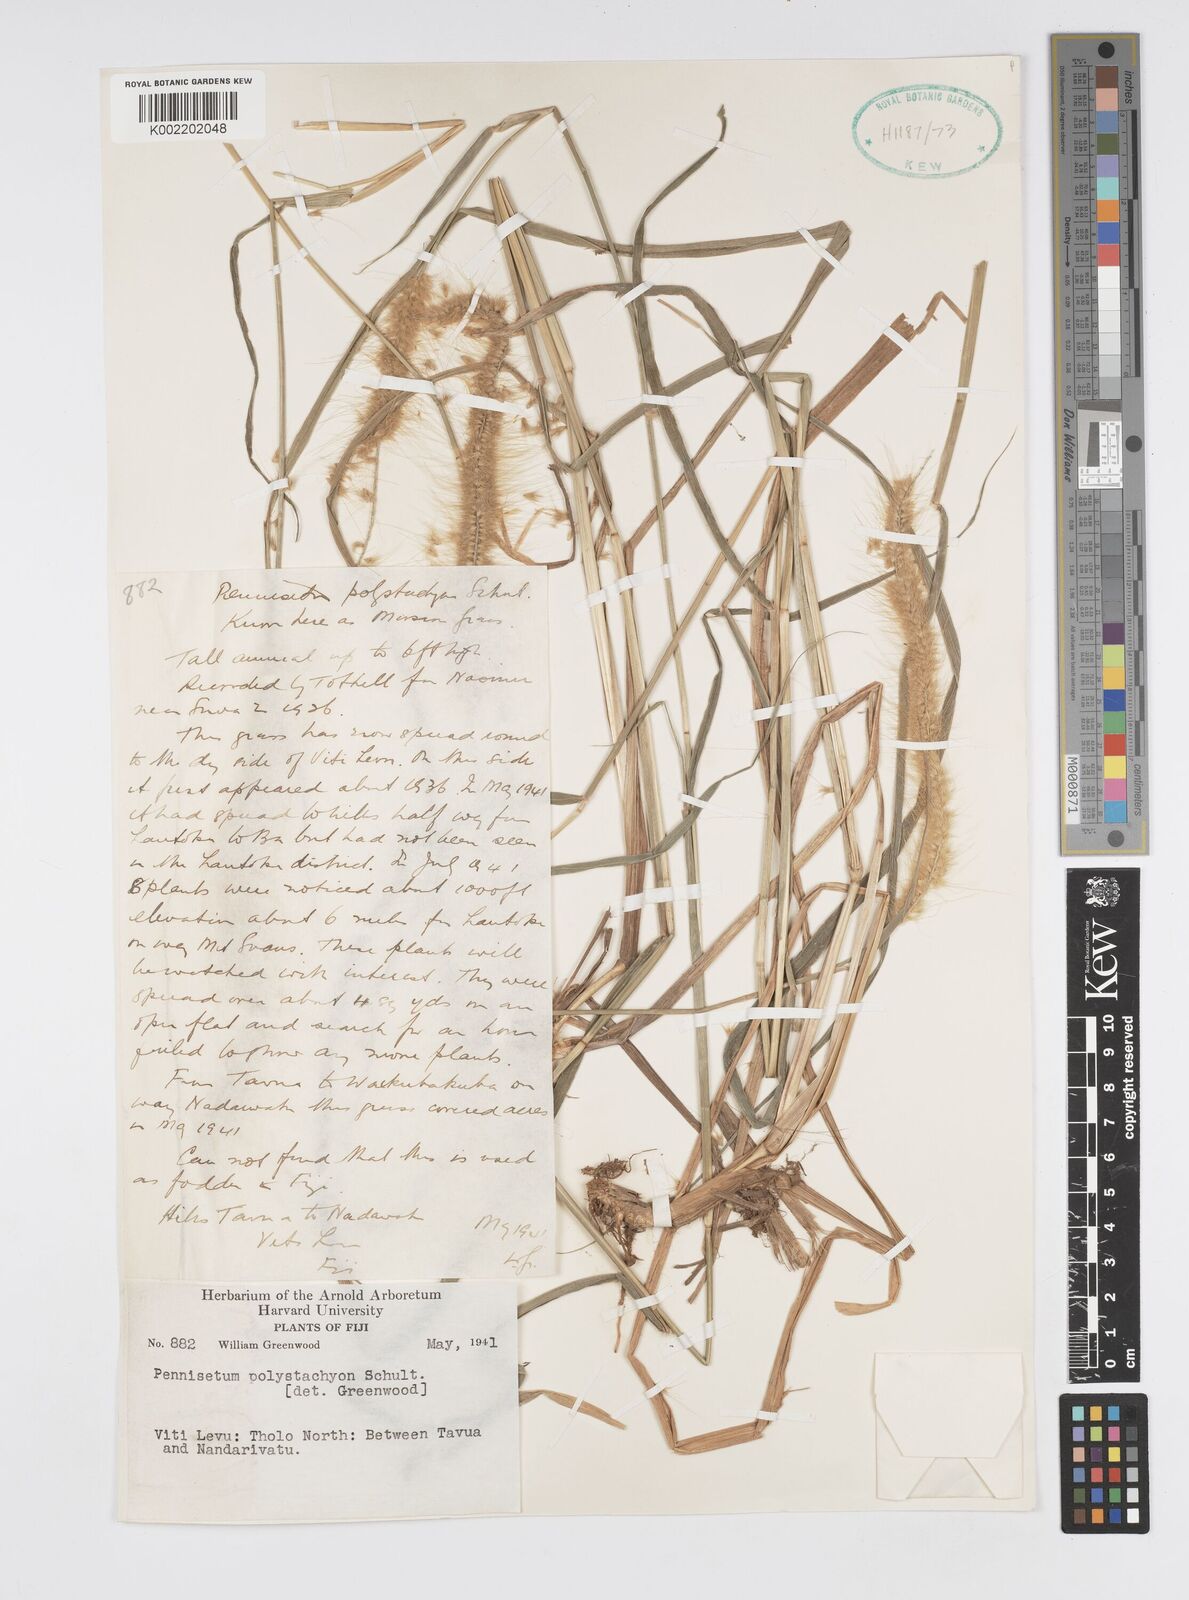 ROYAL BOTANIC GARDENS KEW
K002202048
ROYAL BOTANIC GARDENS
H1187/73
KEW
882
polystachyon Schult.
here as Mission Grass.
Tall annual up to 6ft high
Recorded by Tothill for
near Suva in 1926.
This grass has now spread round
to the dry side of Viti Levu. On this side
it first appeared about 1936. In May 1941
it had spread to hills half way from
Lautoka to Ba but had not been seen
in the Lautoka district. In July 1941
8 plants were noticed about 1000ft
elevation about 6 miles from Lautoka
on way Mt Evans. These plants will
be watched with interest. They were
spread over about 4 sq yds on an
open flat and search for an hour
failed to show any more plants.
From Tavua to Waikubukubu on
way this grass covered acres
in May 1941
Can not find that this is used
as fodder in Fiji.
Hills Tavua to
May 1941
Viti Levu
Fiji
Herbarium of the Arnold Arboretum
Harvard University
PLANTS OF FIJI
No. 882 William Greenwood May, 1941
Pennisetum polystachyon Schult.
[det. Greenwood]
Viti Levu: Tholo North: Between Tavua
and Nandarivatu.
inches
cm
Density
Don Williams
M000871
Royal Botanic Gardens
Kew
0 1 2 3 4 5 6 7 8 9 10
cm
copyright reserved